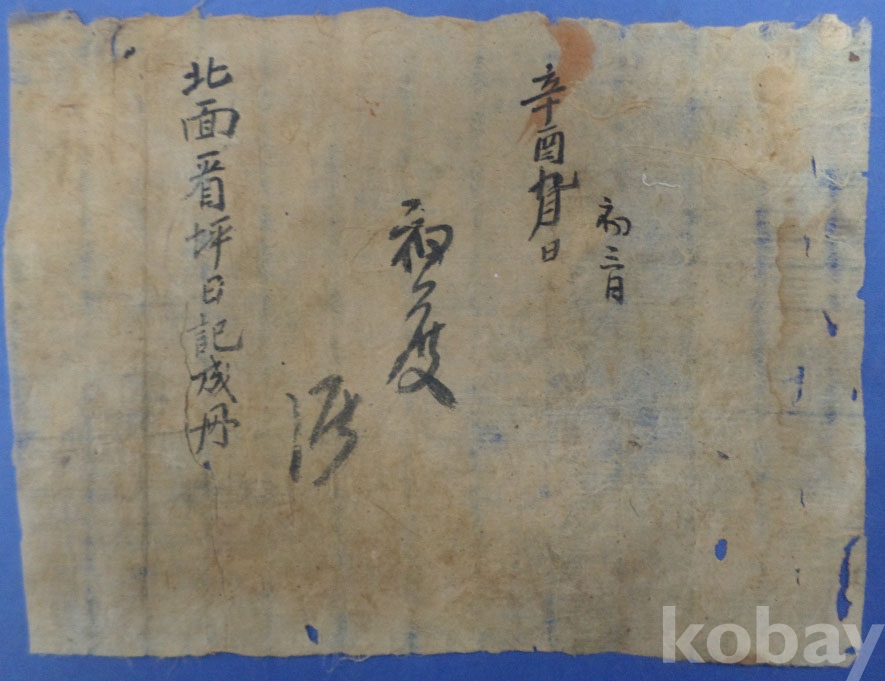 初三日
辛酉九月日
初度
北面看坪日記成冊
kobay